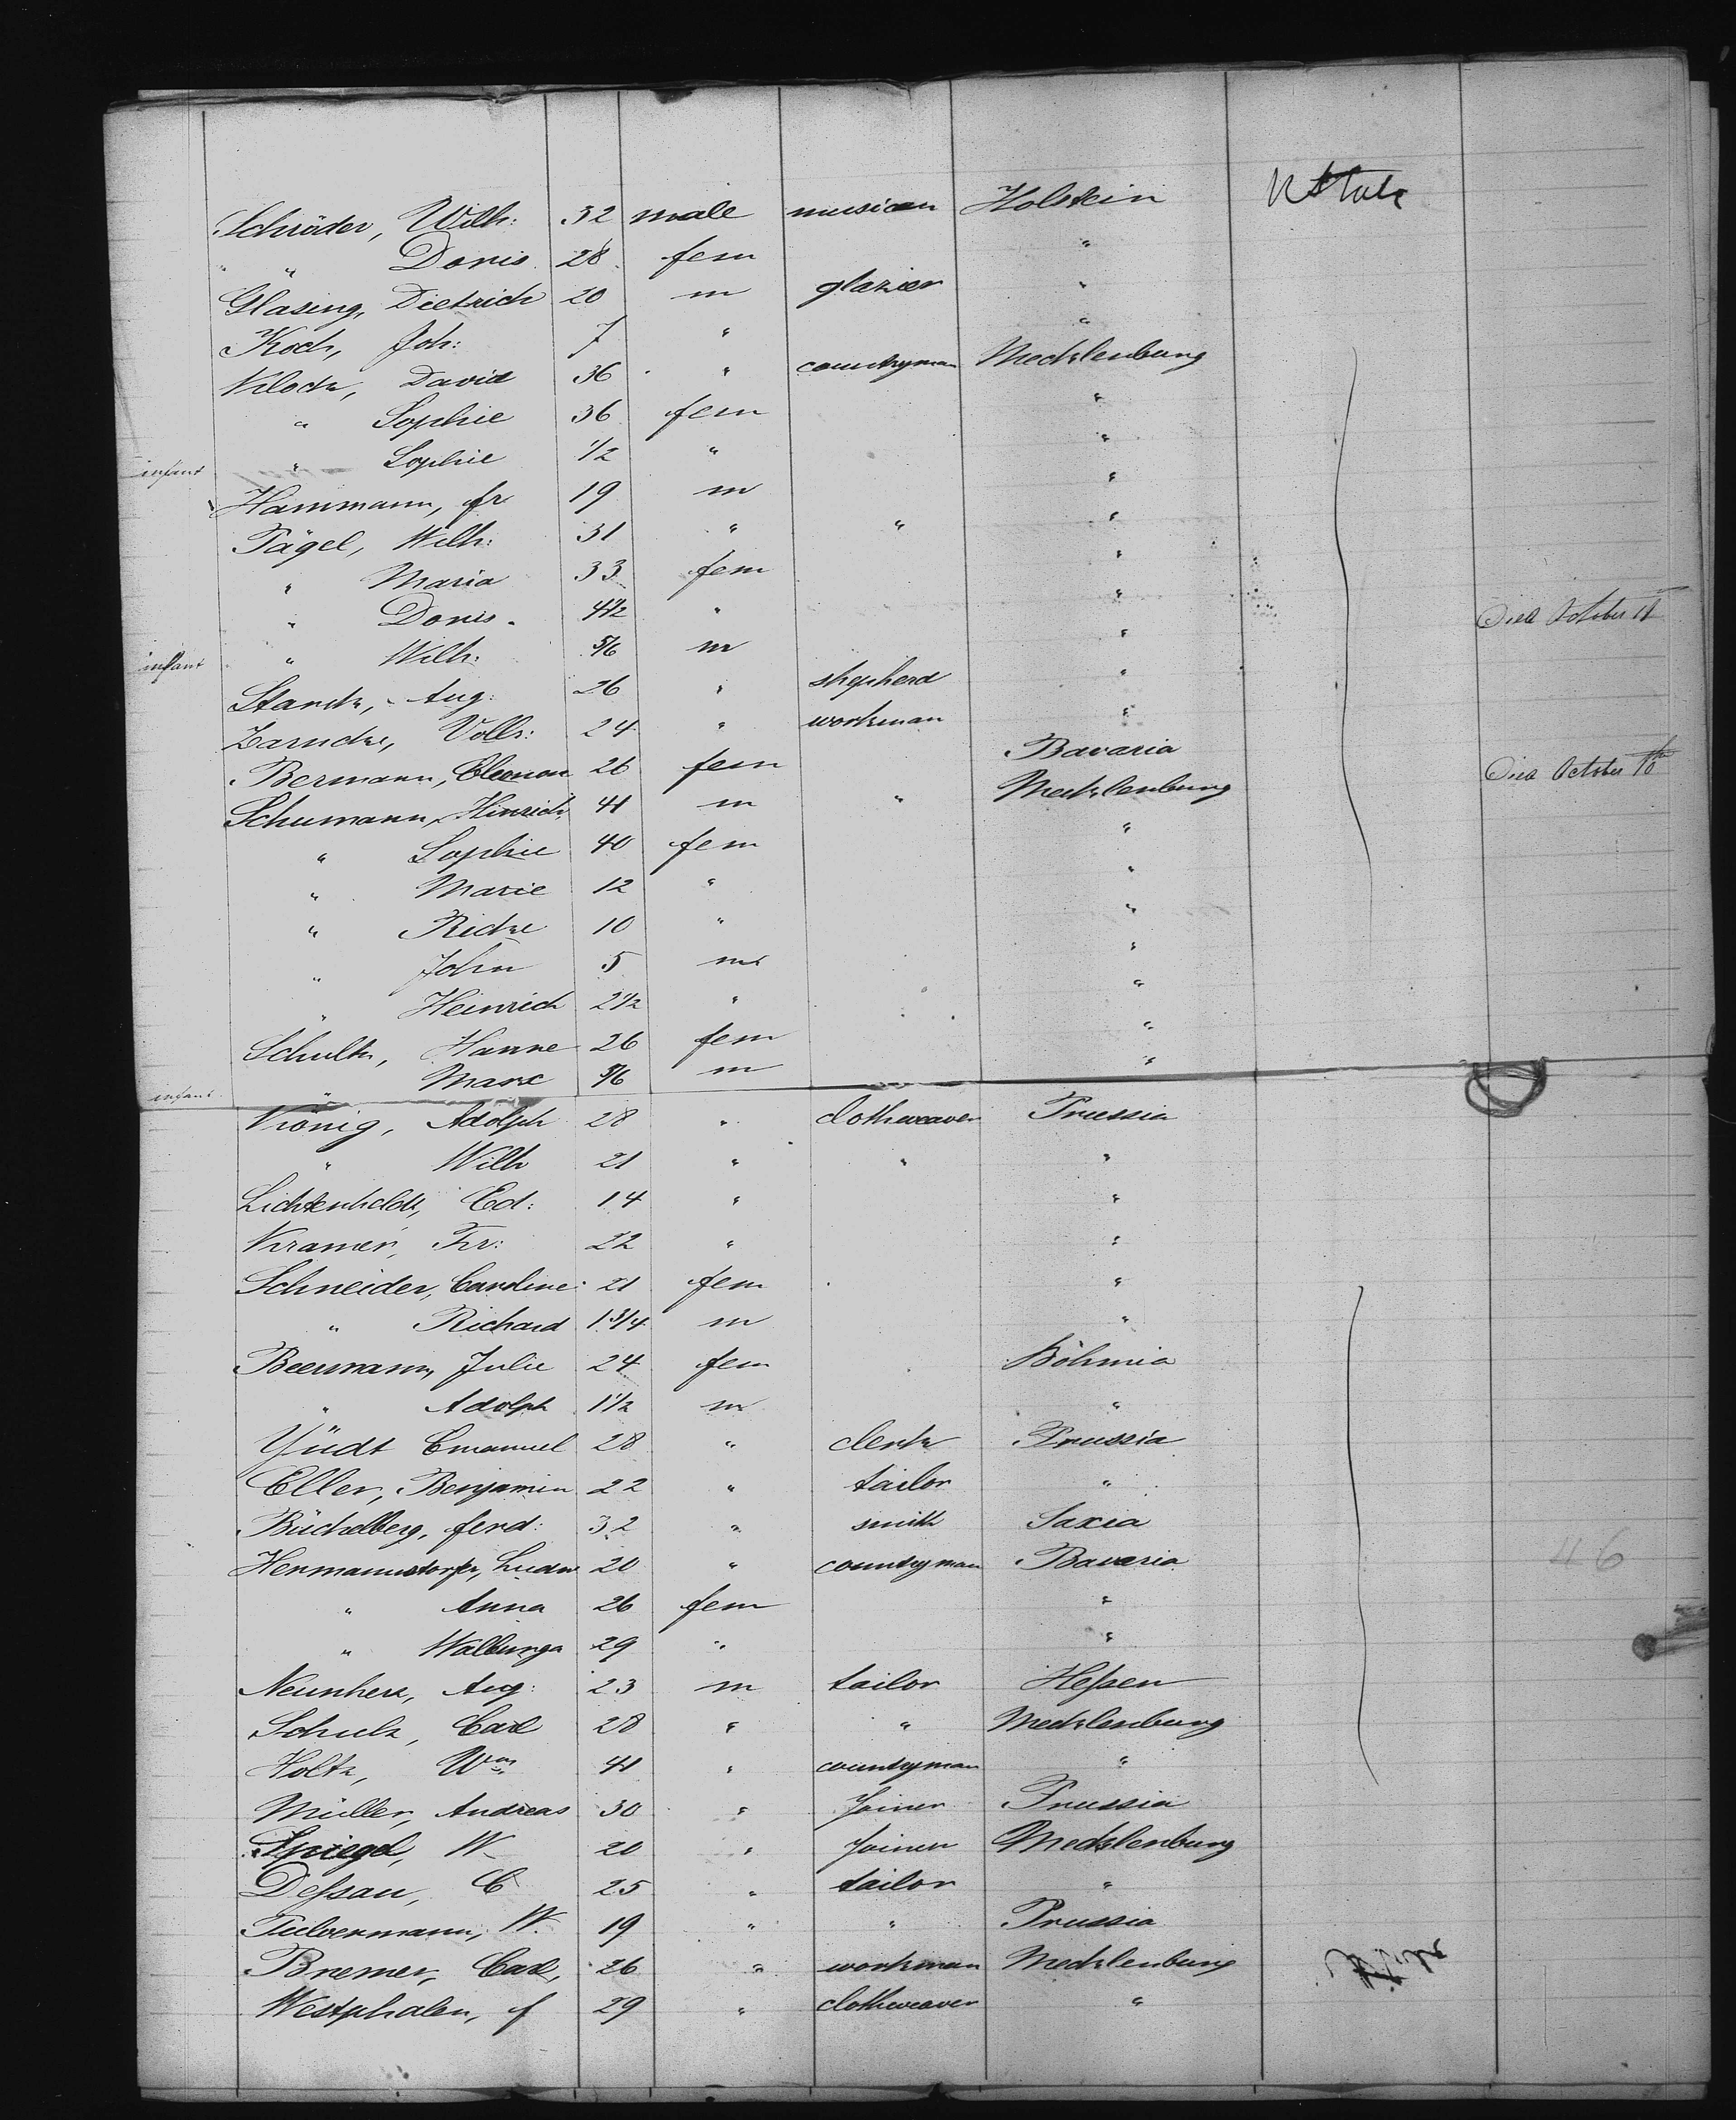 Schröder, Wilh: 32 male musician Holstein
" " Doris 28 fem "
Glasing, Dietrich 20 m glazier "
Koch, Joh: 7 " "
Klock, David 36 " countryman Mecklenburg
" Sophie 36 fem "
infant " Sophie 1/2 " "
Hammann, fr 19 m "
Pägel, Wilh: 31 " " "
" Maria 33 fem "
" Doris 4 1/2 " " Died October 11
infant " Wilh: 5/6 m "
Starck, Aug: 26 " shepherd "
Zarncke, Vollr: 24 " workman "
Bermann, 26 fem Bavaria Died October 10th
Schumann, Hinrich 41 m " Mecklenburg
" Sophie 40 fem "
" Marie 12 " "
" Ricke 10 " "
" John 5 m "
" Heinrich 2 1/2 " "
Schultz, Hanne 26 fem "
infant " Marx 5/6 m "
König, Adolph 28 " clothweaver Prussia
" Wilh 21 " " "
Ed: 14 " "
Kramer, Fr: 22 " "
Schneider, Caroline 21 fem "
" Richard 1 3/4 m "
Beermann, Julie 24 fem Böhmia
" Adolph 1 1/2 m "
Yüdt Emanuel 28 " clerk Prussia
Eller, Benjamin 22 " tailor "
Büchelberg, ferd: 32 " smith Saxia
Hermannstorfer, Ludw 20 " countryman Bavaria
" Anna 26 fem "
" Walburga 29 " "
Neunherz, Aug: 23 m tailor Hessen
Schulz, Carl 28 " " Mecklenburg
Holtz, Wm 41 " countryman "
Müller, Andreas 30 " Joiner Prussia
Spiegel, W 20 " Joiner Mecklenburg
Dessau, C 25 " tailor "
Pulvermann, W. 19 " " Prussia
Bremer, Carl, 26 " workman Mecklenburg
Westphalen, f 29 " clothweaver "
46